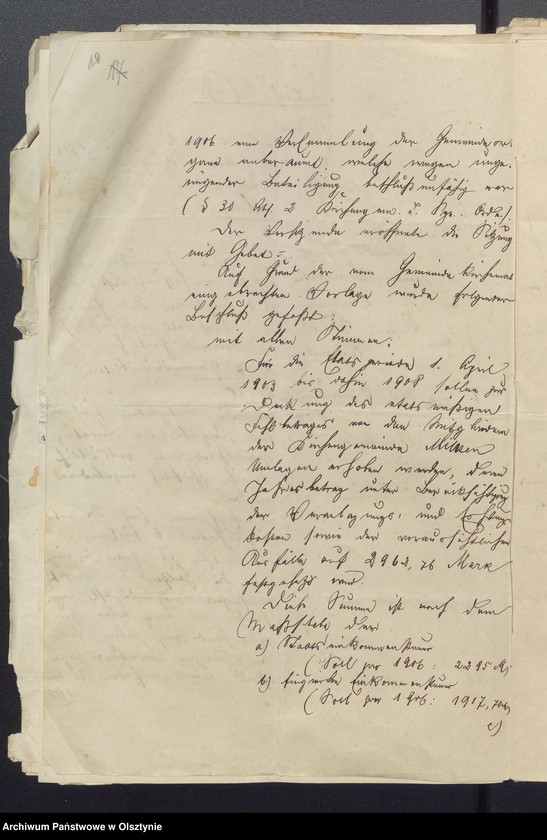 18 17
1906 eine Versammlung der Gemeindeor-
gane anberaumt, welche wegen unge-
nügender Beteiligung beschlußunfähig war
(§ 31 Abs. 2 Kirchengem. u. Syn. Ordn.).
Der Vorsitzende eröffnete die Sitzung
mit Gebet.
Auf Grund der vom Gemeindekirchenrat
eingebrachten Vorlage wurde folgender
Beschluß gefaßt:
mit allen Stimmen:
Für die Etatsperiode 1. April
1903 bis dahin 1908 sollen zur
Deckung des etatsmäßigen
Fehlbetrages von den Mitgliedern
der Kirchengemeinde Milken
Umlagen erhoben werden, deren
Jahresbetrag unter Berücksichtigung
der Veranlagungs- und Hebungs-
kosten sowie der voraussichtlichen
Ausfälle auf 2962,76 Mark
festgesetzt wird.
Diese Summe ist nach dem
Maßstabe der
a) Staatseinkommensteuer
(Soll pro 1906: 2295 M)
b) fingierte Einkommensteuer
(Soll pro 1906: 1917,70
c)
Archiwum Państwowe w Olsztynie